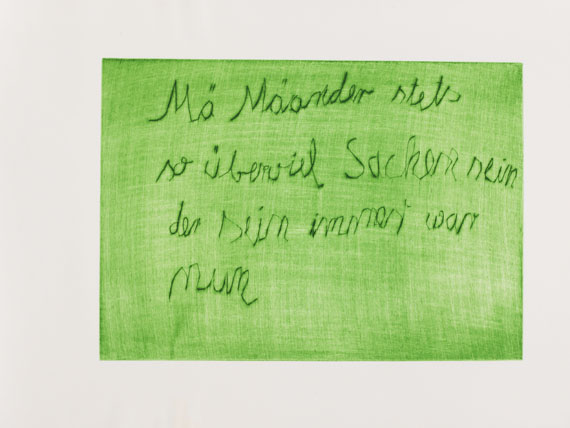 Mä Mäander stets
so überviel Sachen sein
der sein immer war
nun